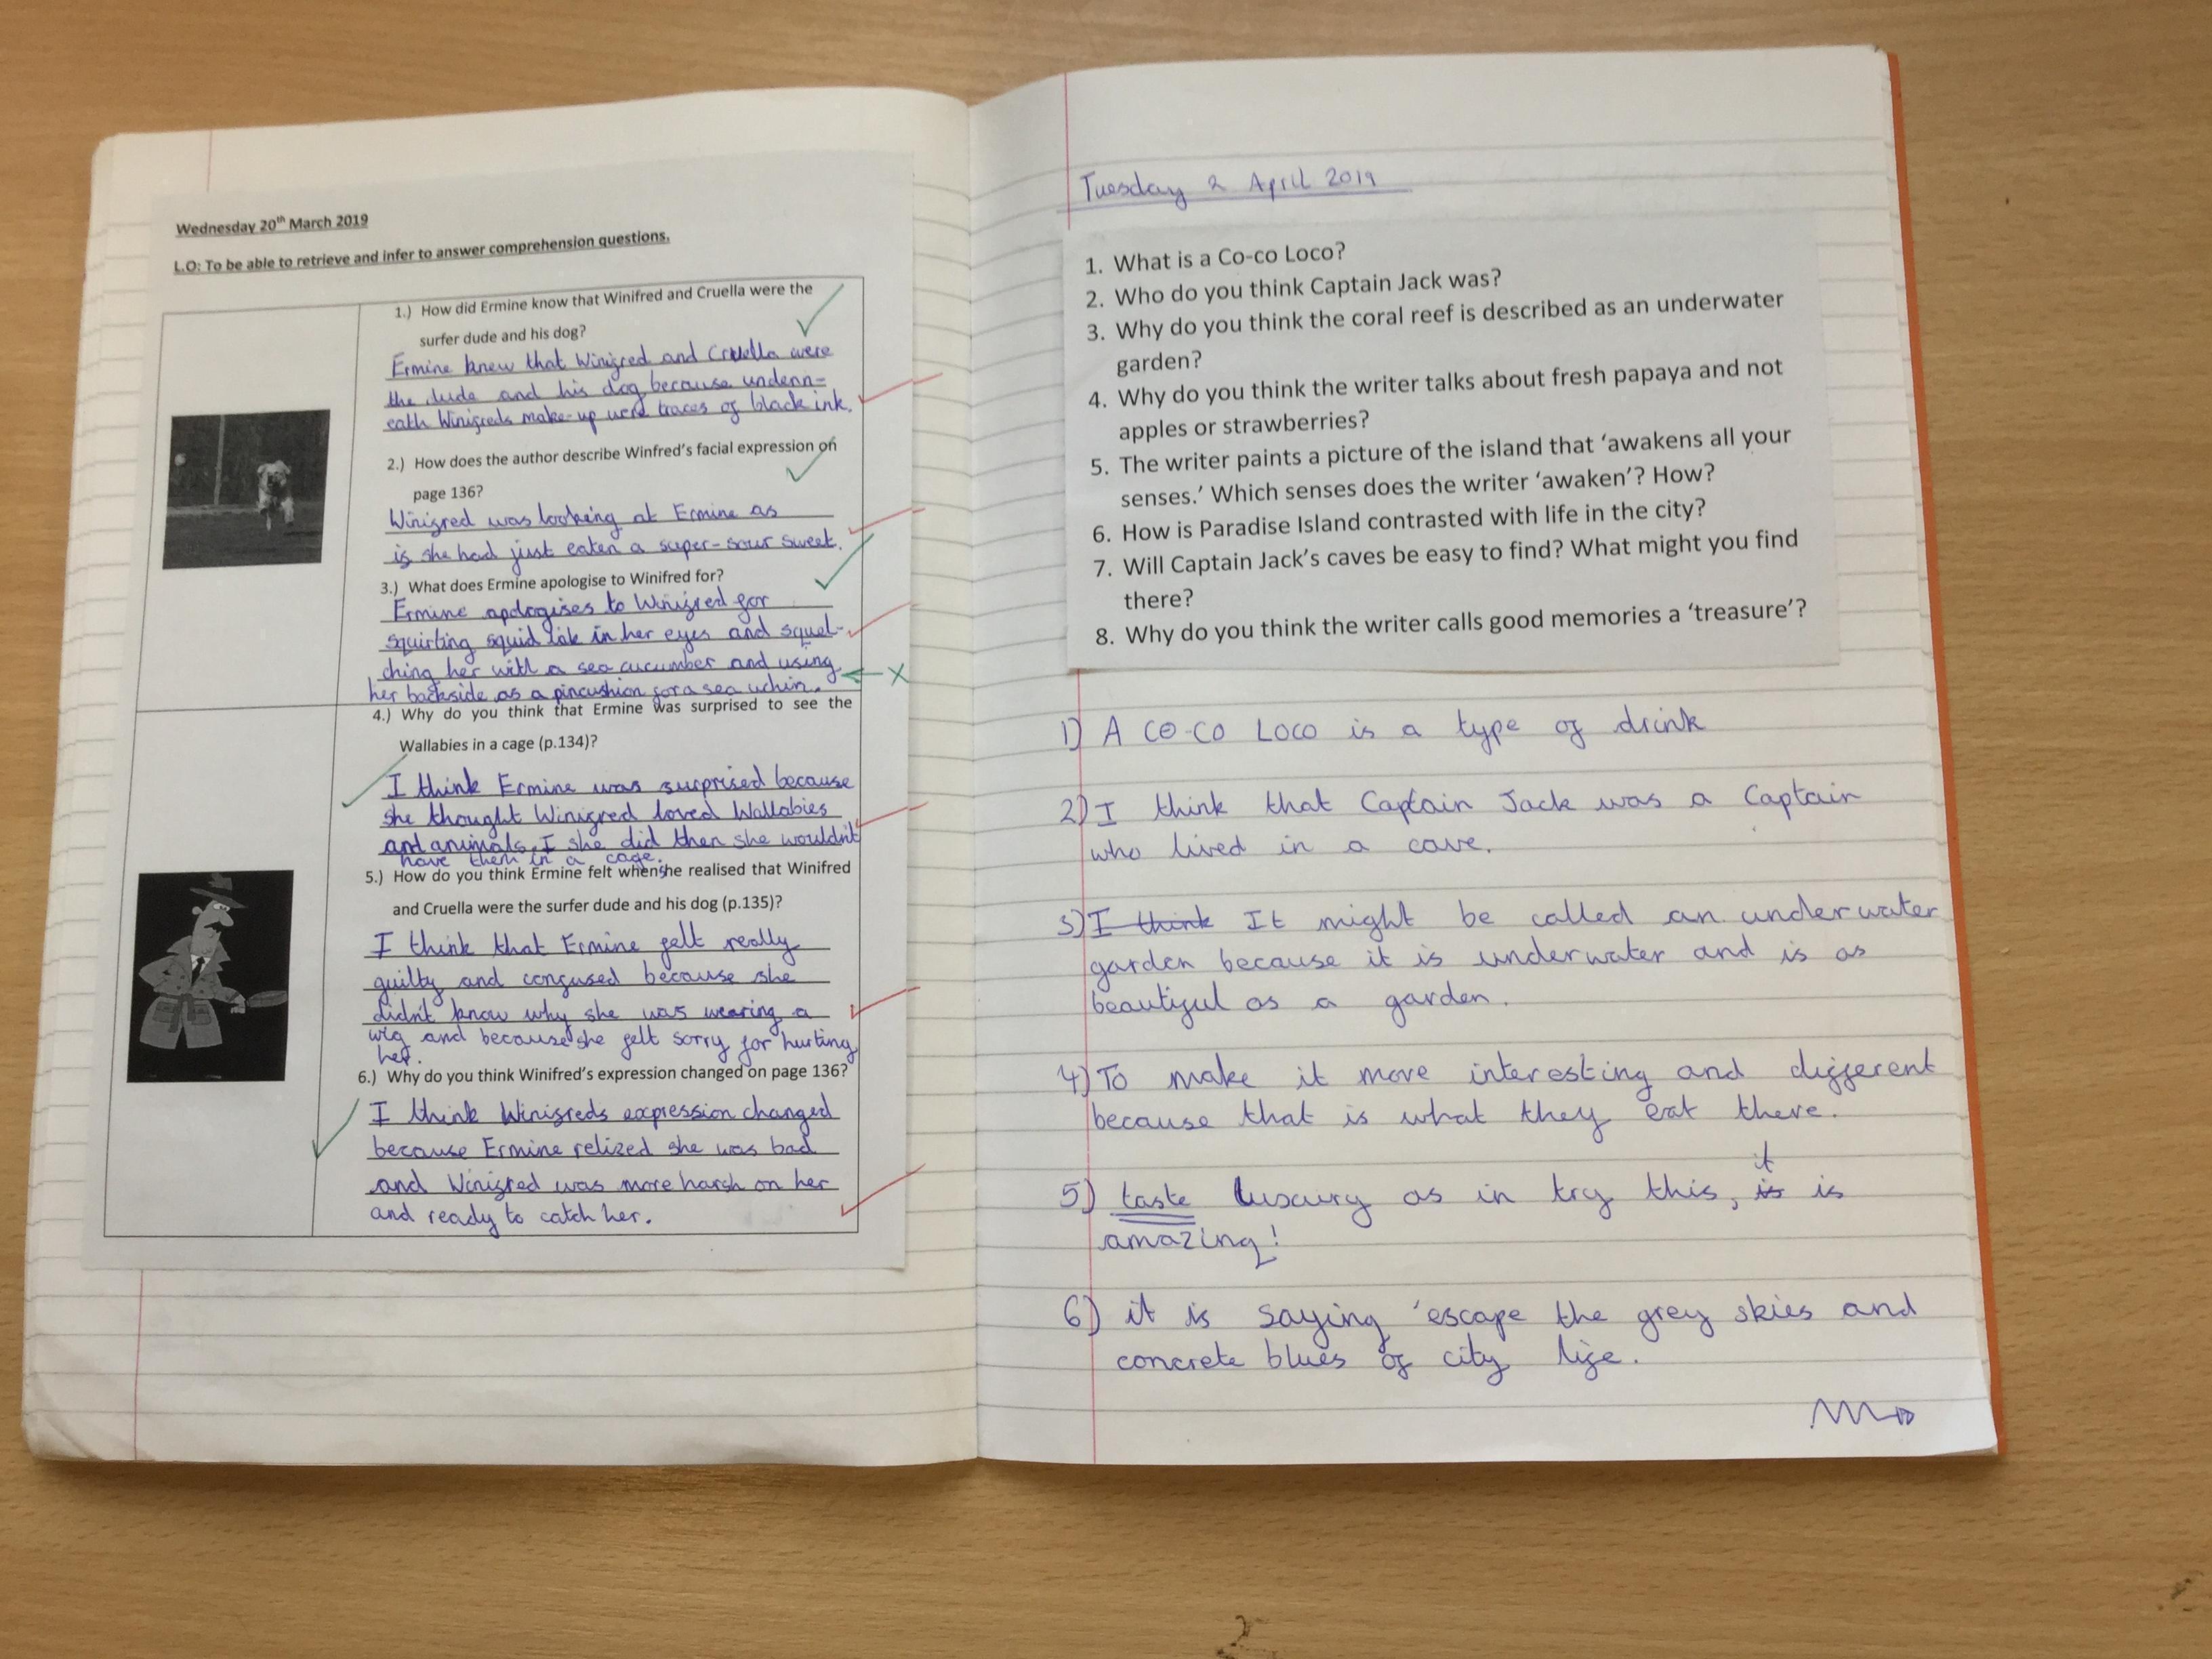 Wednesday 20th March 2019
L.O: To be able to retrieve and infer to answer comprehension questions.
1.) How did Ermine know that Winifred and Cruella were the
surfer dude and his dog?
Ermine knew that Winifred and Cruella were
the dude and his dog because undern-
eath Winifreds make-up were traces of black ink.
2.) How does the author describe Winfred's facial expression on
page 136?
Winifred was looking at Ermine as
if she had just eaten a super-sour sweet.
3.) What does Ermine apologise to Winifred for?
Ermine apologises to Winifred for
squirting squid ink in her eyes and squel-
ching her with a sea cucumber and using
her backside as a pincushion for a sea uchin.
4.) Why do you think that Ermine was surprised to see the
Wallabies in a cage (p.134)?
I think Ermine was surprised because
she thought Winifred loved Wallabies
and animals. I she did then she wouldn't
have them in a cage.
5.) How do you think Ermine felt when she realised that Winifred
and Cruella were the surfer dude and his dog (p.135)?
I think that Ermine felt really
guilty and confused because she
didn't know why she was wearing a
wig and because she felt sorry for hurting
her.
6.) Why do you think Winifred's expression changed on page 136?
I think Winifreds expression changed
because Ermine relized she was bad
and Winifred was more harsh on her
and ready to catch her.
Tuesday 2 April 2019
1. What is a Co-co Loco?
2. Who do you think Captain Jack was?
3. Why do you think the coral reef is described as an underwater
garden?
4. Why do you think the writer talks about fresh papaya and not
apples or strawberries?
5. The writer paints a picture of the island that 'awakens all your
senses.' Which senses does the writer 'awaken'? How?
6. How is Paradise Island contrasted with life in the city?
7. Will Captain Jack's caves be easy to find? What might you find
there?
8. Why do you think the writer calls good memories a 'treasure'?
1) A CO-CO Loco is a type of drink
2) I think that Captain Jack was a Captain
who lived in a cave.
3) I think It might be called an underwater
garden because it is underwater and is as
beautiful as a garden.
4) To make it more interesting and different
because that is what they eat there.
5) taste luxury as in try this, is it is
amazing!
6) it is saying 'escape the grey skies and
concrete blues of city life.